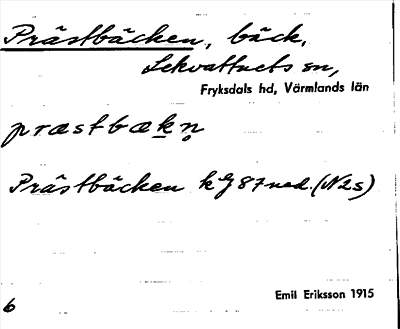 Prästbäcken, bäck,
Lekvattnets sn,
Fryksdals hd, Värmlands län
præstbækn̥
Prästbäcken kg 87 ned. (N2s)
Emil Eriksson 1915
6